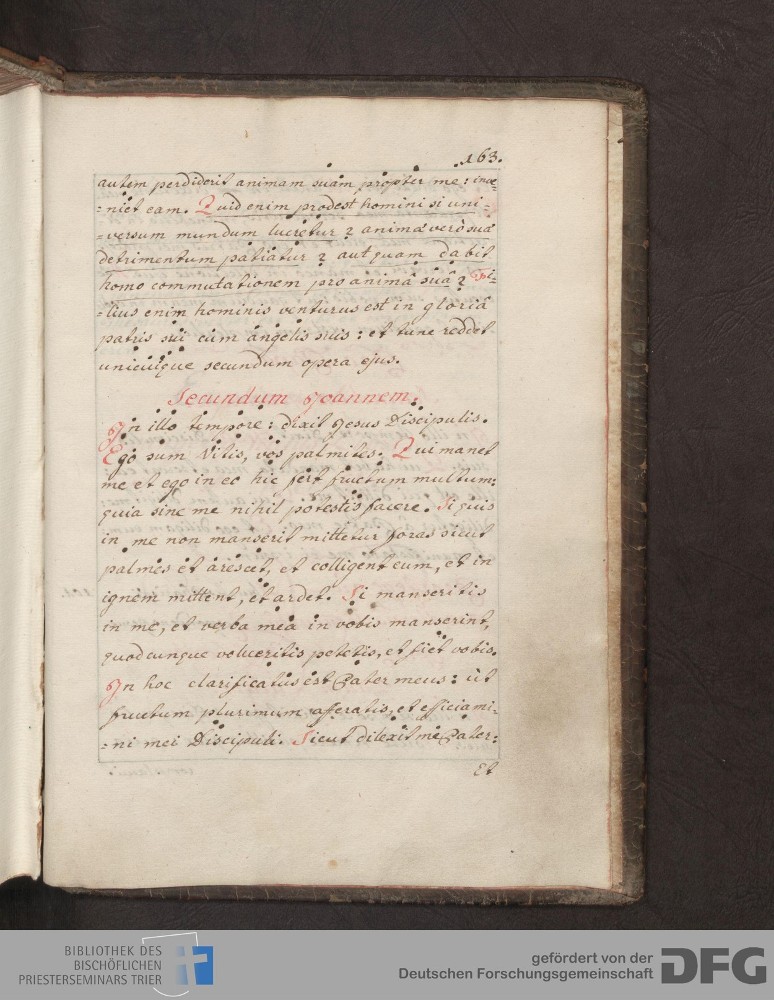 .163.
autem perdiderit animam suam propter me: inve=
=niet eam. Quid enim prodest homini si uni=
=versum mundum lucretur? animæ verò suæ
detrimentum patiatur? aut quam dabit
homo commutationem pro animâ suâ? Fi=
=lius enim hominis venturus est in gloriâ
patris sui cum angelis suis: et tunc reddet
unicuique secundum opera ejus.
Secundum Joannem.
In illo tempore: dixit Jesus Discipulis.
Ego sum Vitis, vos palmites. Qui manet
me et ego in eo hic fert fructum multum:
quia sine me nihil potestis facere. Si quis
in me non manserit mittetur foras sicut
palmes et arescet, et colligent eum, et in
ignem mittent, et ardet. Si manseritis
in me, et verba mea in vobis manserint,
quodcunque volueritis petetis, et fiet vobis.
In hoc clarificatus est Pater meus: ut
fructum plurimum afferatis, et efficiami=
=ni mei Discipuli. Sicut dilexit me Pater:
Et
BIBLIOTHEK DES
BISCHÖFLICHEN
PRIESTERSEMINARS TRIER
gefördert von der
Deutschen Forschungsgemeinschaft
DFG